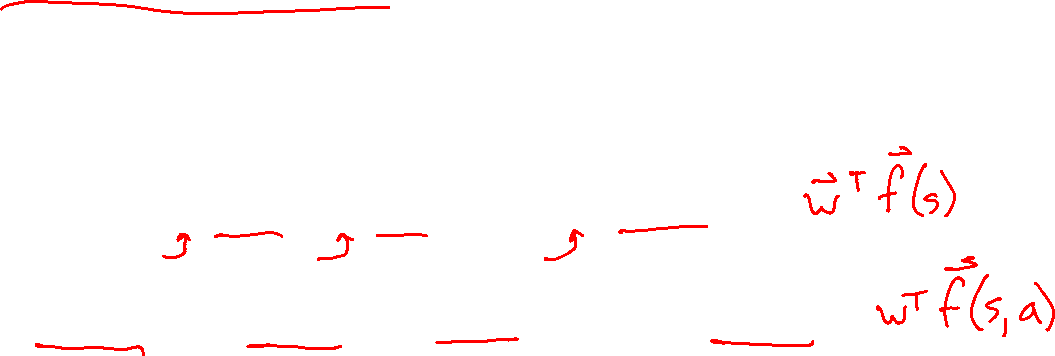 w⃗ᵀ f⃗(s)
wᵀ f⃗(s, a)